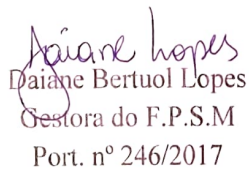 Daiane Lopes
Daiane Bertuol Lopes
Gestora do F.P.S.M
Port. nº 246/2017